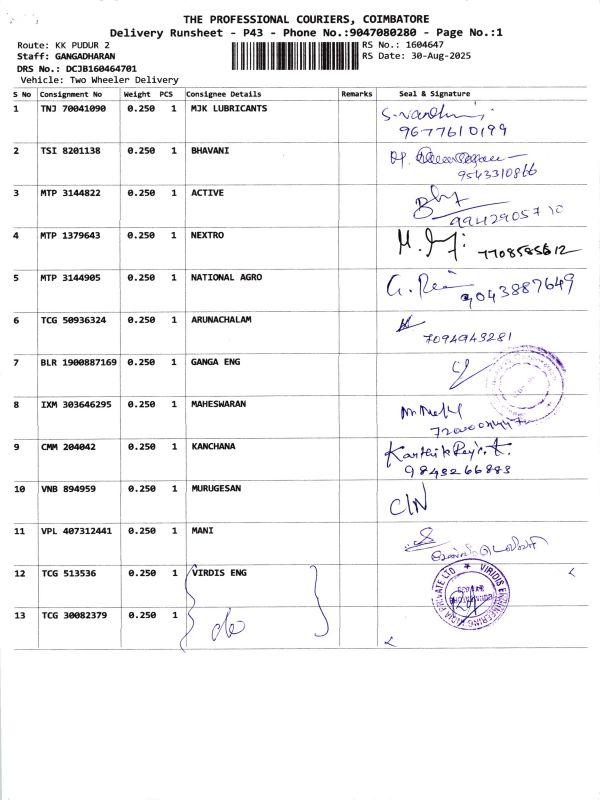 THE PROFESSIONAL COURIERS, COIMBATORE
Delivery Runsheet - P43 - Phone No.:9047080280 - Page No.:1
Route: KK PUDUR 2 RS No.: 1604647
Staff: GANGADHARAN RS Date: 30-Aug-2025
DRS No.: DCJB160464701
Vehicle: Two Wheeler Delivery
S No Consignment No Weight PCS Consignee Details Remarks Seal & Signature
1 TNJ 70041090 0.250 1 MJK LUBRICANTS
9677610199
2 TSI 8201138 0.250 1 BHAVANI
9543310866
3 MTP 3144822 0.250 1 ACTIVE
9942905710
4 MTP 1379643 0.250 1 NEXTRO
7708585612
5 MTP 3144905 0.250 1 NATIONAL AGRO
9043887649
6 TCG 50936324 0.250 1 ARUNACHALAM
7094943281
7 BLR 1900887169 0.250 1 GANGA ENG
8 IXM 303646295 0.250 1 MAHESWARAN
9 CMM 204042 0.250 1 KANCHANA
9843266883
10 VNB 894959 0.250 1 MURUGESAN
C/N
11 VPL 407312441 0.250 1 MANI
12 TCG 513536 0.250 1 VIRDIS ENG
VIRIDIS ENGINEERING INDIA PRIVATE LTD
13 TCG 30082379 0.250 1 do